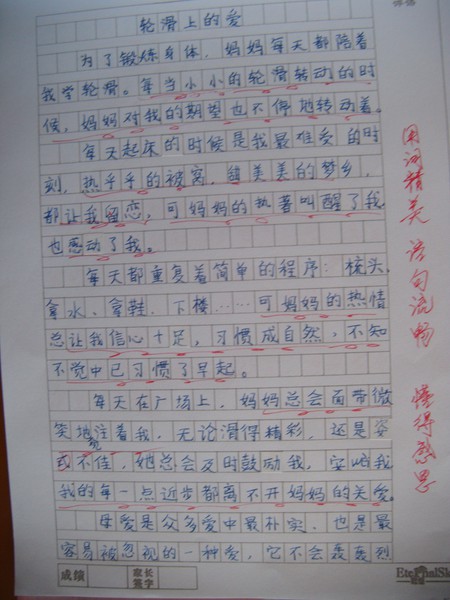 轮滑上的爱
为了锻炼身体，妈妈每天都陪着
我学轮滑。每当小小的轮滑转动的时
候，妈妈对我的期望也不停地转动着。
每天起床的时候是我最难受的时
刻，热乎乎的被窝，美美的梦乡，
都让我留恋，可妈妈的热著叫醒了我，
也感动了我。
每天都重复着简单的程序：梳头、
拿水、拿鞋、下楼……可妈妈的热情
总让我信心十足，习惯成自然，不知
不觉中已习惯了早起。
每天在广场上，妈妈总会面带微
笑地注着我，无论滑得精彩，还是姿
或不佳，她总会及时鼓励我，安哈我
我的每一点近步都离不开妈妈的关爱。
母爱是众多爱中最朴实，也是最
容易被忽视的一种爱，它不会轰轰烈
用词精美 语句流畅 懂得感恩
成绩
家长
签字